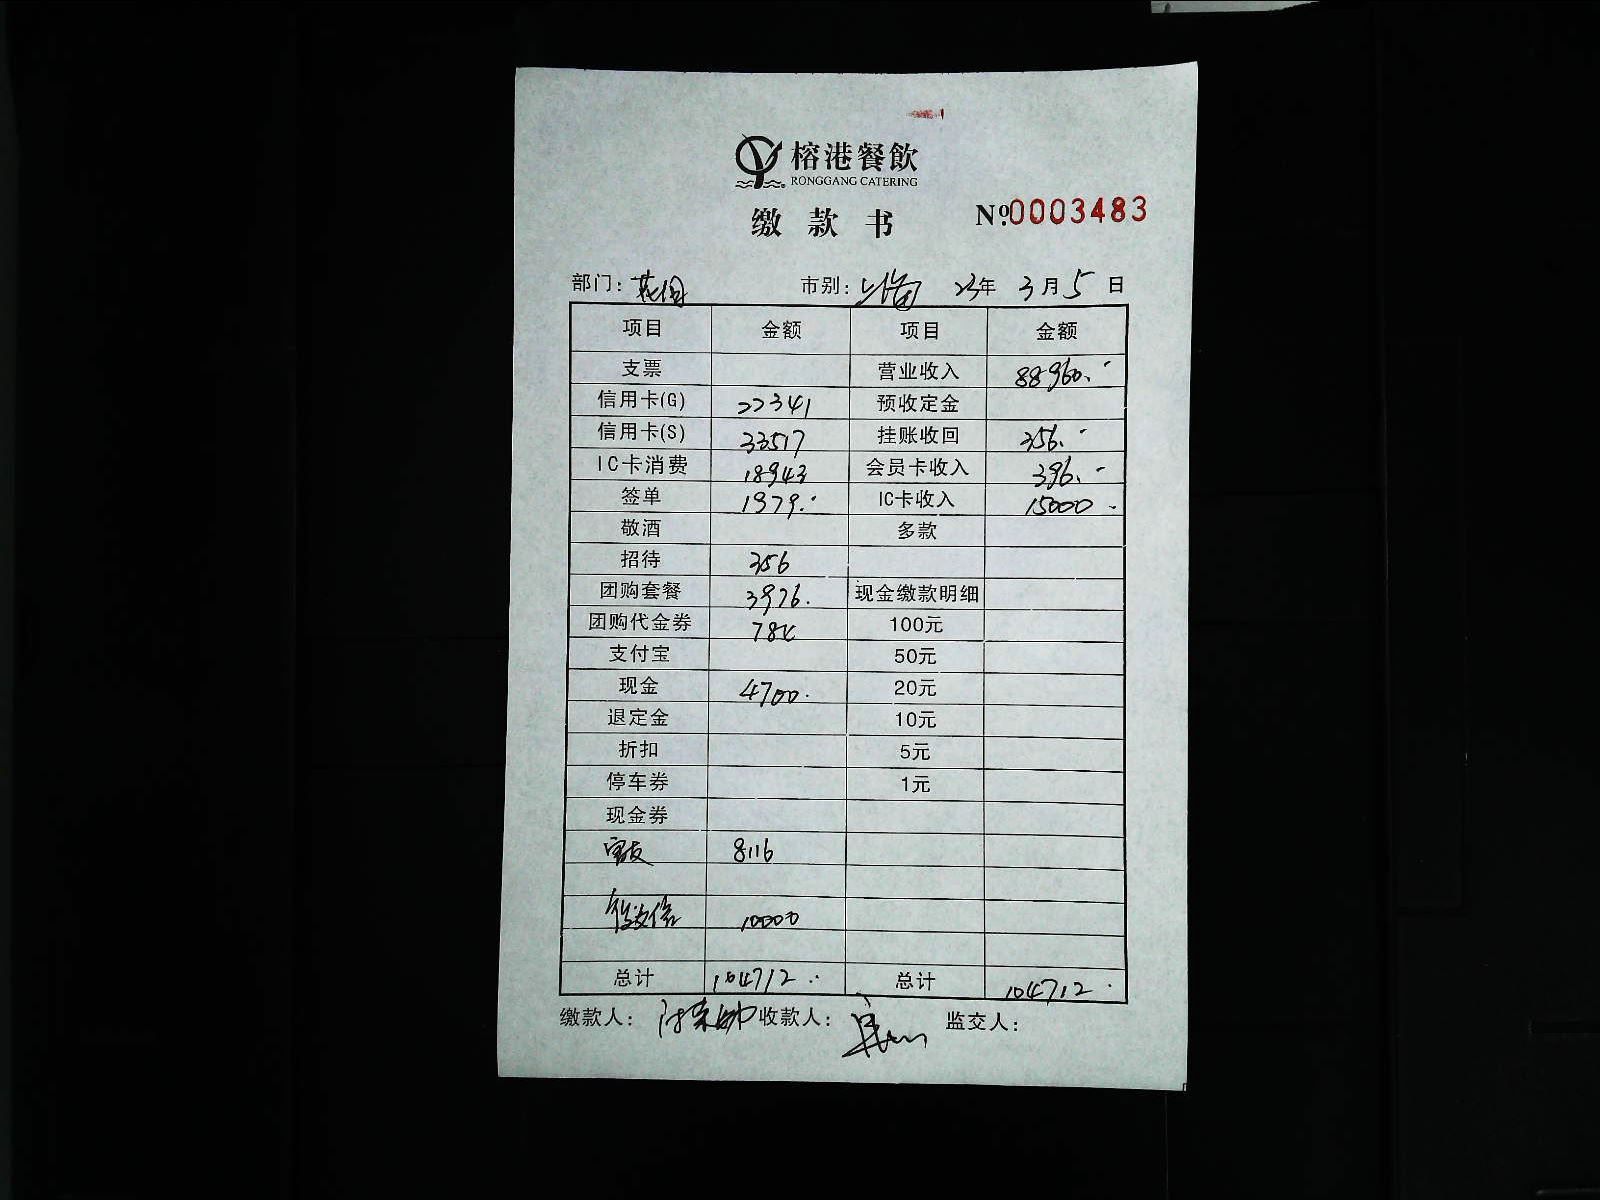 榕港餐飲
RONGGANG CATERING
缴款书 Nº:0003483
部门: 花园 市别: 23年 3月5日
项目 金额 项目 金额
支票 营业收入 88960.-
信用卡(G) 22341 预收定金
信用卡(S) 33517 挂账收回 356.-
IC卡消费 18943 会员卡收入 396.-
签单 1979.- IC卡收入 15000.-
敬酒 多款
招待 356
团购套餐 3976. 现金缴款明细
团购代金券 784 100元
支付宝 50元
现金 4700. 20元
退定金 10元
折扣 5元
停车券 1元
现金券
8116
10000
总计 104712.- 总计 104712.
缴款人: 收款人: 监交人: